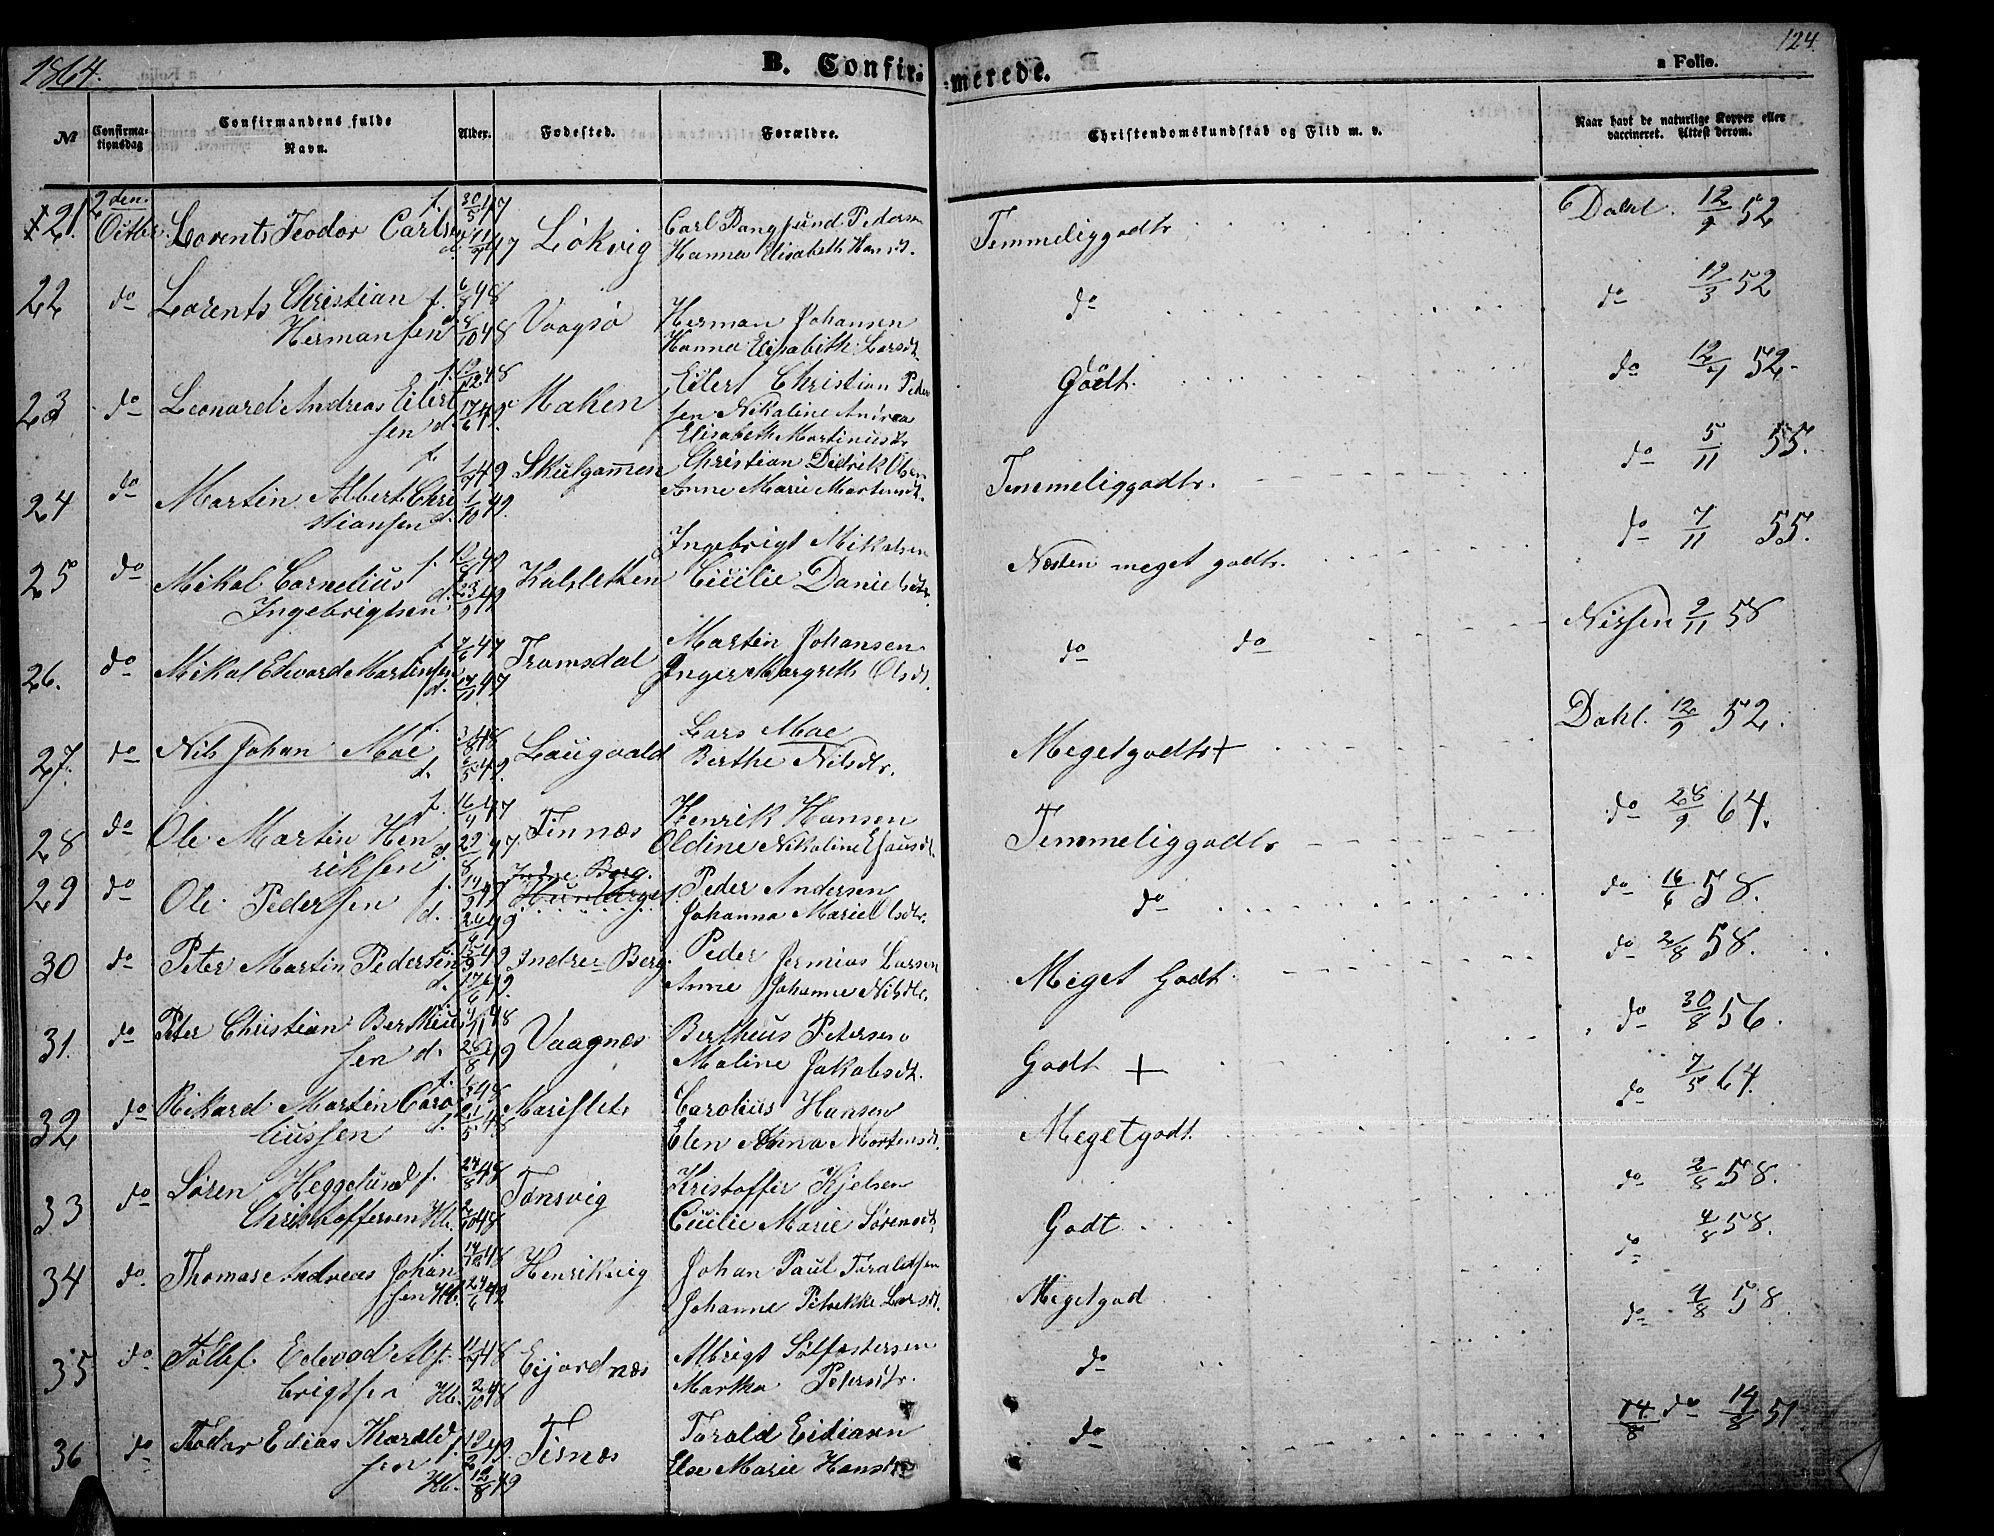 1864.
B. Confir-
merede.
124
a Folio.
№
Confirma-
tionsdag
Confirmandens fulde
Navn.
Alder.
Fødested.
Forældre.
Christendomskundskab og Flid m. v.
Naar havt de naturlige Kopper eller
vaccineret. Attest derom.
21. 2den Octbr. Lorents Teodor Carlsen f. 30/5 47 Løkvig Carl Pedersen
Hanna Elisabeth Hansd.
Temmeliggodt
Dahl. 12/9 52
22 do Lorents Christian f. 6/3 48
Hermansen d. 8/10 48 Vaagsø Herman Johansen
Hanna Elisabeth Larsdt.
do
do 12/3 52
23 do Leonard Andreas Eilert
sen d. 17/6 49 Maken Eilert Christian Peder
sen Nikoline Andrea
Elisabeth Martinusdtr
Godt.
do 12/9 52.
24 do Martin Albert Chri
stiansen d. 1/10 49. Skulgammen Christian Didrik Olsen
Anne Marie Mortensdt.
Temmeliggodt.
do 5/11 55.
25 do Mikal Cornelius f.
Ingebrigtsen d. 23/9 49 Kalsletten Ingebrigt Mikalsen
Cecilie Danielsdtr.
Næsten meget godt.
do 7/11 55.
26. do Mikal Edvard Martinsen f. 7/6 47 d. 47 Tromsdal Martin Johansen
Inger Margreth Olsdt.
do do
Nissen 9/11 58
27. do Nils Johan Moe f. 48 d. 6/5 49. Laugvold Lars Moe
Berthe Nilsdtr.
Megetgodt +
Dahl. 12/9 52.
28 do Ole Martin Hen
riksen f. 16/4 47 d. 29/8 47. Finnæs Henrik Hansen
Oldine Nikoline Esausdt.
Temmeliggodt
do 28/9 64.
29 do Ole Pedersen f. d. Indre Berg. Peder Andersen
Johanna Marie Olsdtr.
do
do 16/6 58.
30 do Peter Martin Pedersen d. 17/6 49. Indre Berg. Peder Jermias Larsen
Anne Johanne Nilsdtr.
Meget Godt
do 2/8 58.
31. do Peter Christian Bertheu
sen d. 28/8 49 Vaagnæs Bertheus Petersen
Maline Jakobsdt.
Godt +
do 30/8 56.
32 do Rikard Martin Caro
liussen f. 48 d. 21/5 48 Marislet Carolius Hansen
Elen Anna Mortensdt.
Megetgodt
do 7/5 64.
33 do Søren Heggelund f. 24/8 48
Christoffersen Hb. 48 Tønsvig Kristoffer Kjelsen
Cecilie Marie Sørensdt.
Godt
do 2/8 58.
34 do Thomas Andreas Johan
sen Hb. 24/6 49 Henrikvig Johan Paul Toraldsen
Johanne Petrikke Larsdt.
Megetgod
do 4/8 58.
35 do Tollef Edevad Al
brigtsen Hb. 2/10 48 Eijordnæs Albrigt Sølfæstersen
Martha Petersdtr.
do
do 4/8 58.
36 do Teodor Edias Thorald
sen f. 12/2 49. Hb. 12/8 49 Tisnæs Torald Eidiasen
Else Marie Hansdtr
do
14/8 do 14/8 51